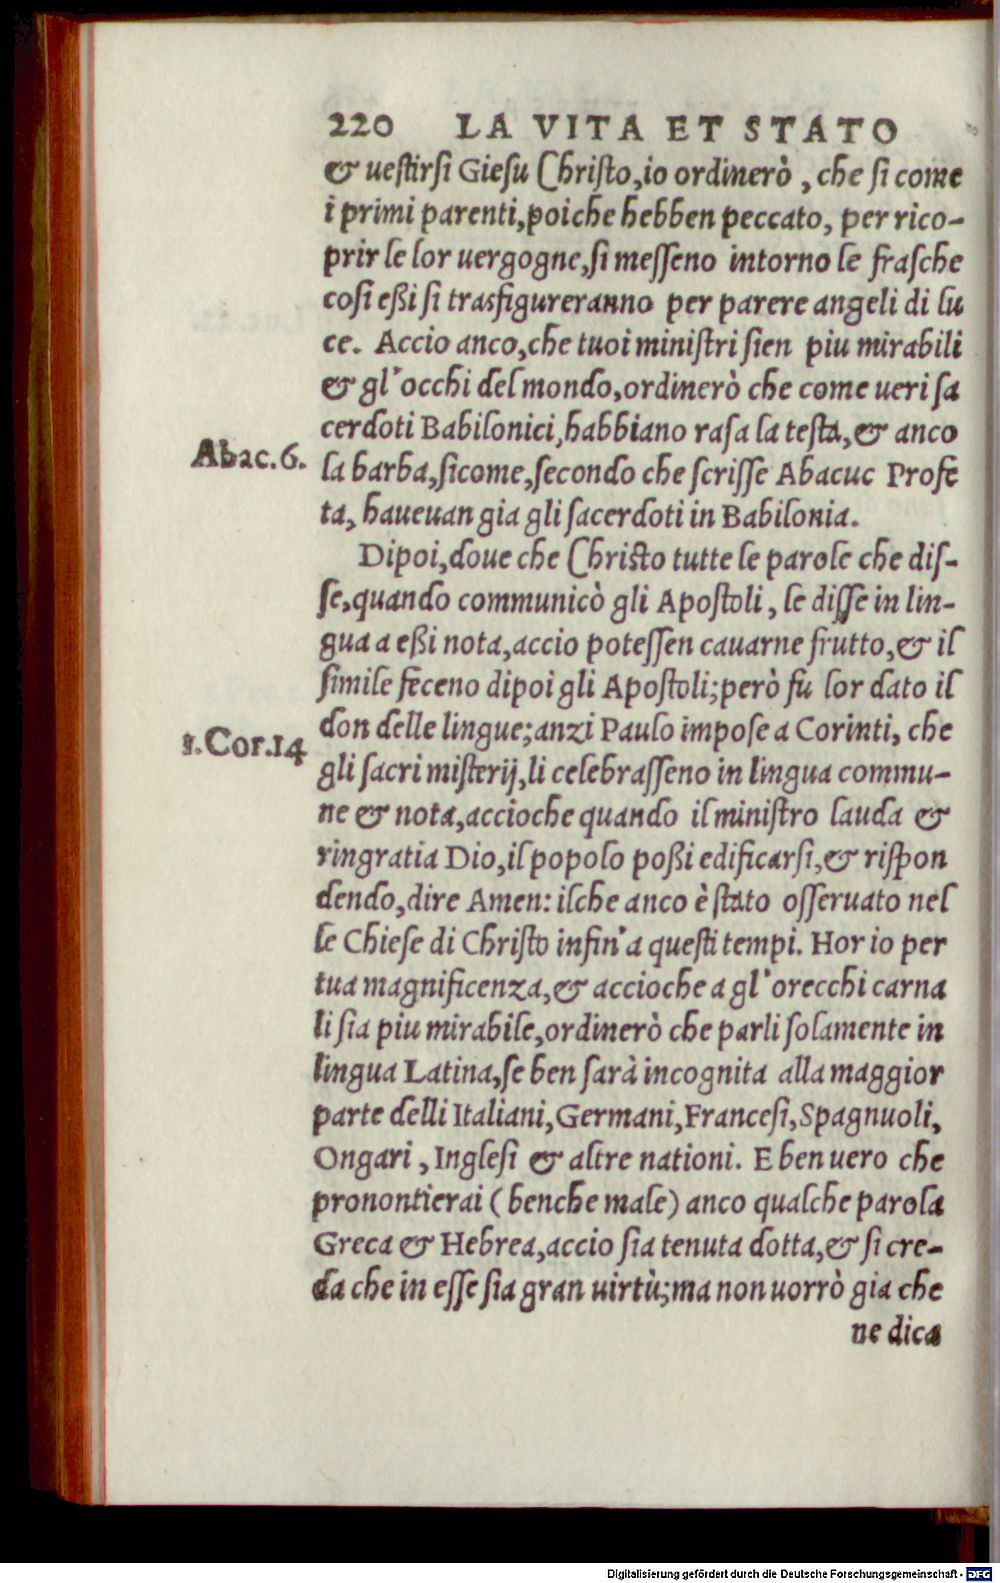 220 LA VITA ET STATO
& uestirsi Giesu Christo, io ordinerò, che si come
i primi parenti, poiche hebben peccato, per rico-
prir le lor uergogne, si messeno intorno le frasche
cosi eßi si trasfigureranno per parere angeli di lu
ce. Accio anco, che tuoi ministri sien piu mirabili
& gl'occhi del mondo, ordinerò che come ueri sa
cerdoti Babilonici, habbiano rasa la testa, & anco
Abac.6.
la barba, sicome, secondo che scrisse Abacuc Profe
ta, haueuan gia gli sacerdoti in Babilonia.
Dipoi, doue che Christo tutte le parole che dis-
se, quando communicò gli Apostoli, le disse in lin-
gua a eßi nota, accio potessen cauarne frutto, & il
simile feceno dipoi gli Apostoli; però fu lor dato il
don delle lingue; anzi Paulo impose a Corinti, che
1.Cor.14
gli sacri misterij, li celebrasseno in lingua commu-
ne & nota, accioche quando il ministro lauda &
ringratia Dio, il popolo poßi edificarsi, & rispon
dendo, dire Amen: ilche anco è stato osseruato nel
le Chiese di Christo infin'a questi tempi. Hor io per
tua magnificenza, & accioche a gl'orecchi carna
li sia piu mirabile, ordinerò che parli solamente in
lingua Latina, se ben sarà incognita alla maggior
parte delli Italiani, Germani, Francesi, Spagnuoli,
Ongari, Inglesi & altre nationi. E ben uero che
pronontierai (benche male) anco qualche parola
Greca & Hebrea, accio sia tenuta dotta, & si cre-
da che in esse sia gran uirtù; ma non uorrò gia che
ne dica
Digitalisierung gefördert durch die Deutsche Forschungsgemeinschaft - DFG